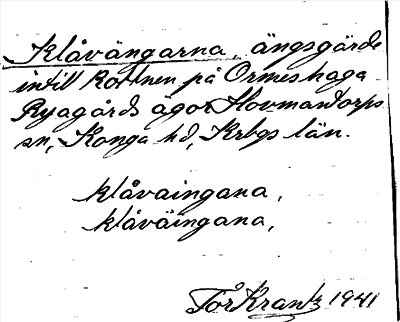 Klåvängarna, ängsgärde
intill Rottnen på Ormeshaga
Ryagårds ägor Hovmantorps
sn, Konga hd, Krbgs län.
klåvaingana,
klåväingana,
Tor Krantz 1941